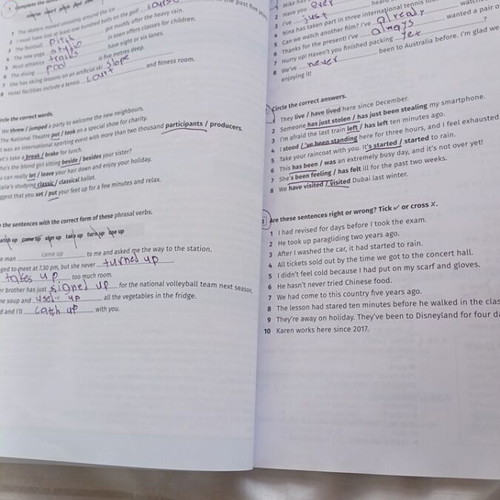 Complete the
The skaters moved
I must have lost at least
The football pitch
The new running
Most athletics tracks have eight or six lanes.
The diving pool is five metres deep.
She has skiing lessons on an artificial slope
Hotel facilities include a tennis court and fitness room.
circle the correct words.
We threw / jumped a party to welcome the new neighbours.
The National Theatre put / took on a special show for charity.
It was an international sporting event with more than two thousand participants / producers.
Let's take a break / brake for lunch.
Who's the blond girl sitting beside / besides your sister?
can really let / leave your hair down and enjoy your holiday.
studying classic / classical ballet.
suggest that you set / put your feet up for a few minutes and relax.
the sentences with the correct form of these phrasal verbs.
catch up come up sign up take up turn up use up
man came up to me and asked me the way to the station.
to meet at 7.30 pm, but she never turned up
takes up too much room.
brother has just signed up for the national volleyball team next season.
soup and use up all the vegetables in the fridge.
and I'll catch up with you.
ever
I've just
Nina has taken part in three international tennis
Can we watch another film? I've already
Thanks for the present! I've always wanted a pair of
Hurry up! Haven't you finished packing yet ?
We've never been to Australia before. I'm glad we
enjoying it!
Circle the correct answers.
1 They live / have lived here since December.
2 Someone has just stolen / has just been stealing my smartphone.
3 I'm afraid the last train left / has left ten minutes ago.
4 I stood / 've been standing here for three hours, and I feel exhausted
5 Take your raincoat with you. It's started / started to rain.
6 This has been / was an extremely busy day, and it's not over yet!
7 She's been feeling / has felt ill for the past two weeks.
8 We have visited / visited Dubai last winter.
3 Are these sentences right or wrong? Tick ✓ or cross X.
1 I had revised for days before I took the exam.
2 He took up paragliding two years ago.
3 After I washed the car, it had started to rain.
4 All tickets sold out by the time we got to the concert hall.
5 I didn't feel cold because I had put on my scarf and gloves.
6 He hasn't never tried Chinese food.
7 We had come to this country five years ago.
8 The lesson had stared ten minutes before he walked in the class
9 They're away on holiday. They've been to Disneyland for four da
10 Karen works here since 2017.